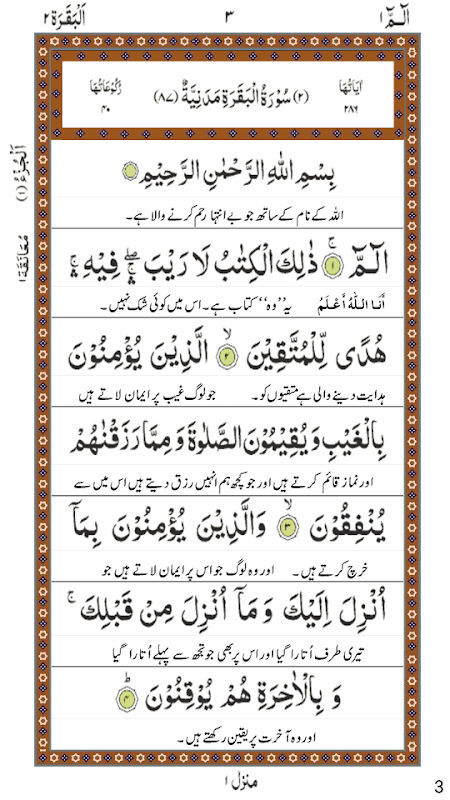 الٓمّٓ ۱ ۳ اَلْبَقَرَة ۲
اٰیَاتُهَا ۲۸۶ (۲) سُوْرَةُ الْبَقَرَةِ مَدَنِيَّةٌ (۸۷) رُكُوْعَاتُهَا ۴۰
اَلْجُزْءُ (۱)
مُعَانَقَة ۱
بِسْمِ اللّٰهِ الرَّحْمٰنِ الرَّحِيْمِ
اللہ کے نام کے ساتھ جو بے انتہا رحم کرنے والا ہے۔
الٓمّٓ ۚ۱ ذٰلِكَ الْكِتٰبُ لَا رَيْبَ ۛۖ فِيْهِ ۛۚ
اَنَا اللّٰهُ اَعْلَمُ یہ ’’وہ‘‘ کتاب ہے۔ اس میں کوئی شک نہیں۔
هُدًى لِّلْمُتَّقِيْنَ ۙ۲ الَّذِيْنَ يُؤْمِنُوْنَ
ہدایت دینے والی ہے متقیوں کو۔ جو لوگ غیب پر ایمان لاتے ہیں
بِالْغَيْبِ وَيُقِيْمُوْنَ الصَّلٰوةَ وَمِمَّا رَزَقْنٰهُمْ
اور نماز قائم کرتے ہیں اور جو کچھ ہم انہیں رزق دیتے ہیں اس میں سے
يُنْفِقُوْنَ ۙ۳ وَالَّذِيْنَ يُؤْمِنُوْنَ بِمَآ
خرچ کرتے ہیں۔ اور وہ لوگ جو اس پر ایمان لاتے ہیں جو
اُنْزِلَ اِلَيْكَ وَمَآ اُنْزِلَ مِنْ قَبْلِكَ ۚ
تیری طرف اُتارا گیا اور اس پر بھی جو تجھ سے پہلے اُتارا گیا
وَبِالْاٰخِرَةِ هُمْ يُوْقِنُوْنَ ؕ۴
اور وہ آخرت پر یقین رکھتے ہیں۔
منزل ۱
3